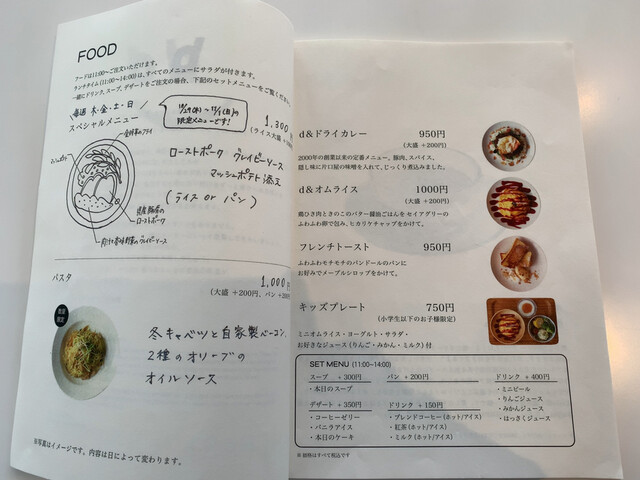 FOOD
フードは11:00〜ご注文いただけます。
ランチタイム(11:00〜14:00)は、すべてのメニューにサラダが付きます。
一緒にドリンク、スープ、デザートをご注文の場合、下記のセットメニューをご覧ください。
毎週 木・金・土・日
スペシャルメニュー
限定メニューです!
1,300
(ライス大盛 +200
ローストポーク グレイビーソース
マッシュポテト添え
(ライス or パン)
ローストポーク
パスタ
1,000
(大盛 +200円、パン+200
数量
限定
冬キャベツと自家製ベーコン、
2種のオリーブの
オイルソース
※写真はイメージです。内容は日によって変わります。
d&ドライカレー 950円
(大盛 +200円)
2000年の創業以来の定番メニュー。豚肉、スパイス、
隠し味に片口屋の味噌を入れて、じっくり煮込みました。
d&オムライス 1000円
(大盛 +200円)
鶏ひき肉ときのこのバター醤油ごはんをセイアグリーの
ふわふわ卵で包み、ヒカリケチャップをかけて。
フレンチトースト 950円
ふわふわモチモチのパンドールのパンに
お好みでメープルシロップをかけて。
キッズプレート 750円
(小学生以下のお子様限定)
ミニオムライス・ヨーグルト・サラダ・
お好きなジュース(りんご・みかん・ミルク)付
SET MENU (11:00~14:00)
スープ +300円
・本日のスープ
パン +200円
ドリンク +400円
・ミニビール
・りんごジュース
・みかんジュース
・はっさくジュース
デザート +350円
・コーヒーゼリー
・バニラアイス
・本日のケーキ
ドリンク +150円
・ブレンドコーヒー(ホット/アイス)
・紅茶(ホット/アイス)
・ミルク(ホット/アイス)
※価格はすべて税込です